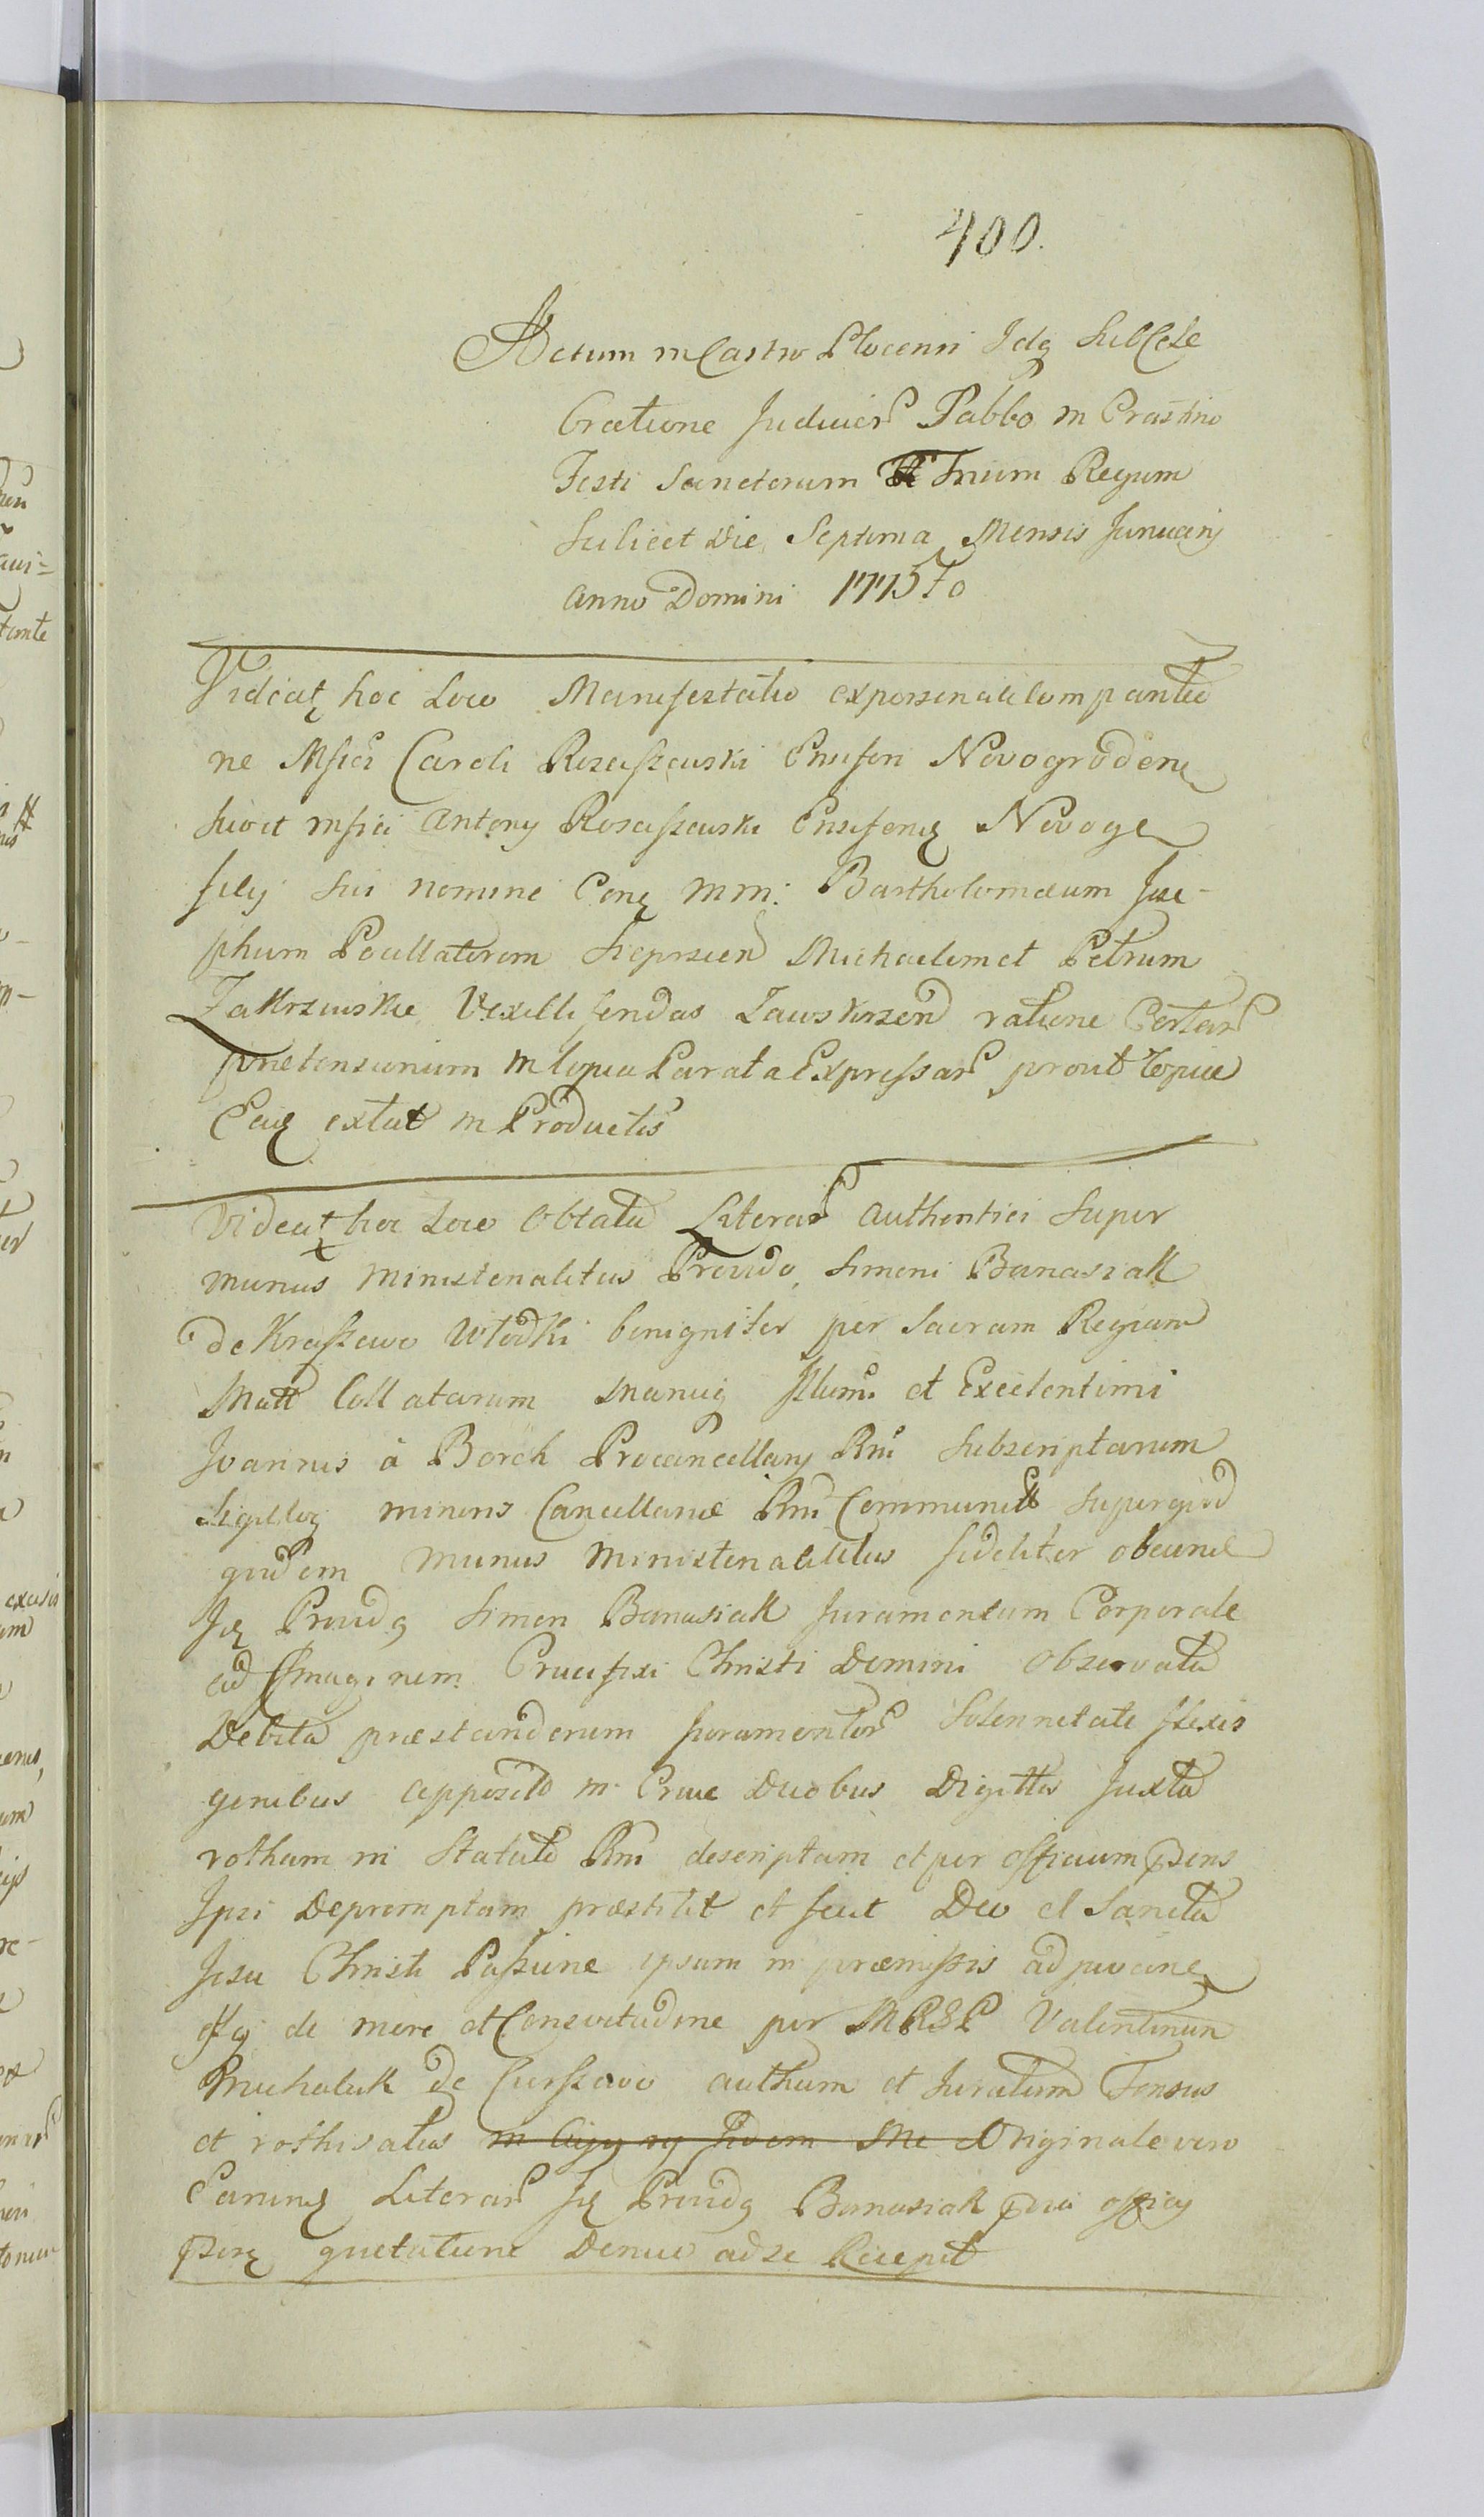 400.
Actum in Castro Plocensi Idq Sub Cele
bratione Judicior Pabbo in Crastino
Festi Sanctorum Trium Regum
Scilicet die Septima Mensis Januarij
Anno Domini 1775to
Videat hoc Loco Manifestatio ex personali Comparitio
ne Msici Caroli Rosciszewski Ensiferi Novogroden
suo et msici Antonij Rosciszewski Ensiferi Novogr
filij sui nomine Con MM: Bartholomæum Jose-
phum Pocillatorem Sieprscen Michaelem et Petrum
Zakrzewskie Vexilliferidas Zawskrzen ratione Certar
prætensionum in Copia Parata Expressar prout Copia
Ejus extat in Productis
Videat hoc Loco Oblata Literar Authentici Super
munus Ministerialitus Provido Simoni Banasiak
de Kraszewo Włodki benigniter per Sacram Regiam
Matt Collatarum Manuq Illum et Excelentimi
Joannis à Borch Procancellarij Rni Subscriptarum
Sigilloq minoris Cancellariæ Rni Communit Super quod
quidem munus Ministerialitus fideliter obeund
Id Providq Simon Banasiak Juramentum Corporale
ad Imaginem Crucifixi Christi Domini observata
Debita præstandorum Juramentor Solennitate flexis
genibus apposit in Cruce Duobus Digittis Juxta
rotham in Statuto Rni descriptam et per officium psens
Ipsi Depromptam præstitit et fecit Deo et Sancta
Jesu Christi Passione ipsum in præmissis adjuvan
de more et Consvetudine per MRSP Valentinum
Michalak de Curszewo authum et Juratum Tonsus
et rothisatus Originale vero
Earund Literar Id Providq Banasiak officij
quietatione Denuo ad se Recepit